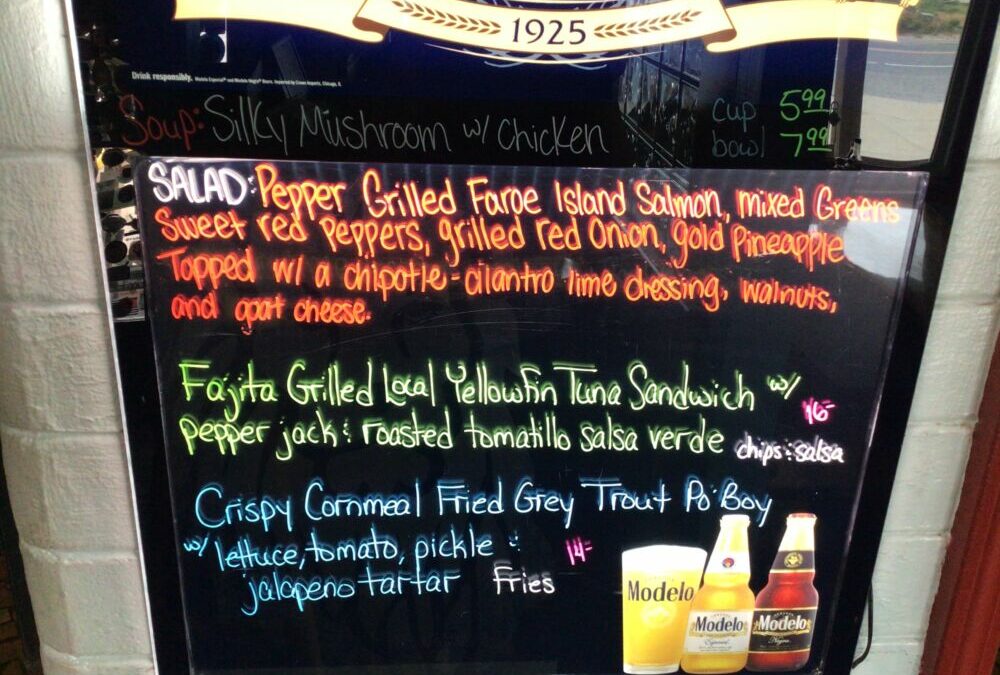 1925
Drink responsibly. Modelo Especial® and Modelo Negra® Beers. Imported by Crown Imports, Chicago, IL
Soup: Silky Mushroom w/ Chicken
cup 5.99
bowl 7.99
SALAD: Pepper Grilled Faroe Island Salmon, mixed Greens
Sweet red Peppers, grilled red Onion, gold Pineapple
Topped w/ a chipotle-cilantro lime dressing, walnuts,
and goat cheese.
Fajita Grilled Local Yellowfin Tuna Sandwich w/
16-
pepper jack & roasted tomatillo salsa verde chips & salsa
Crispy Cornmeal Fried Grey Trout Po' Boy
w/ lettuce, tomato, pickle &
14-
jalapeno tartar Fries
Modelo
Modelo
Especial
Modelo
Negra